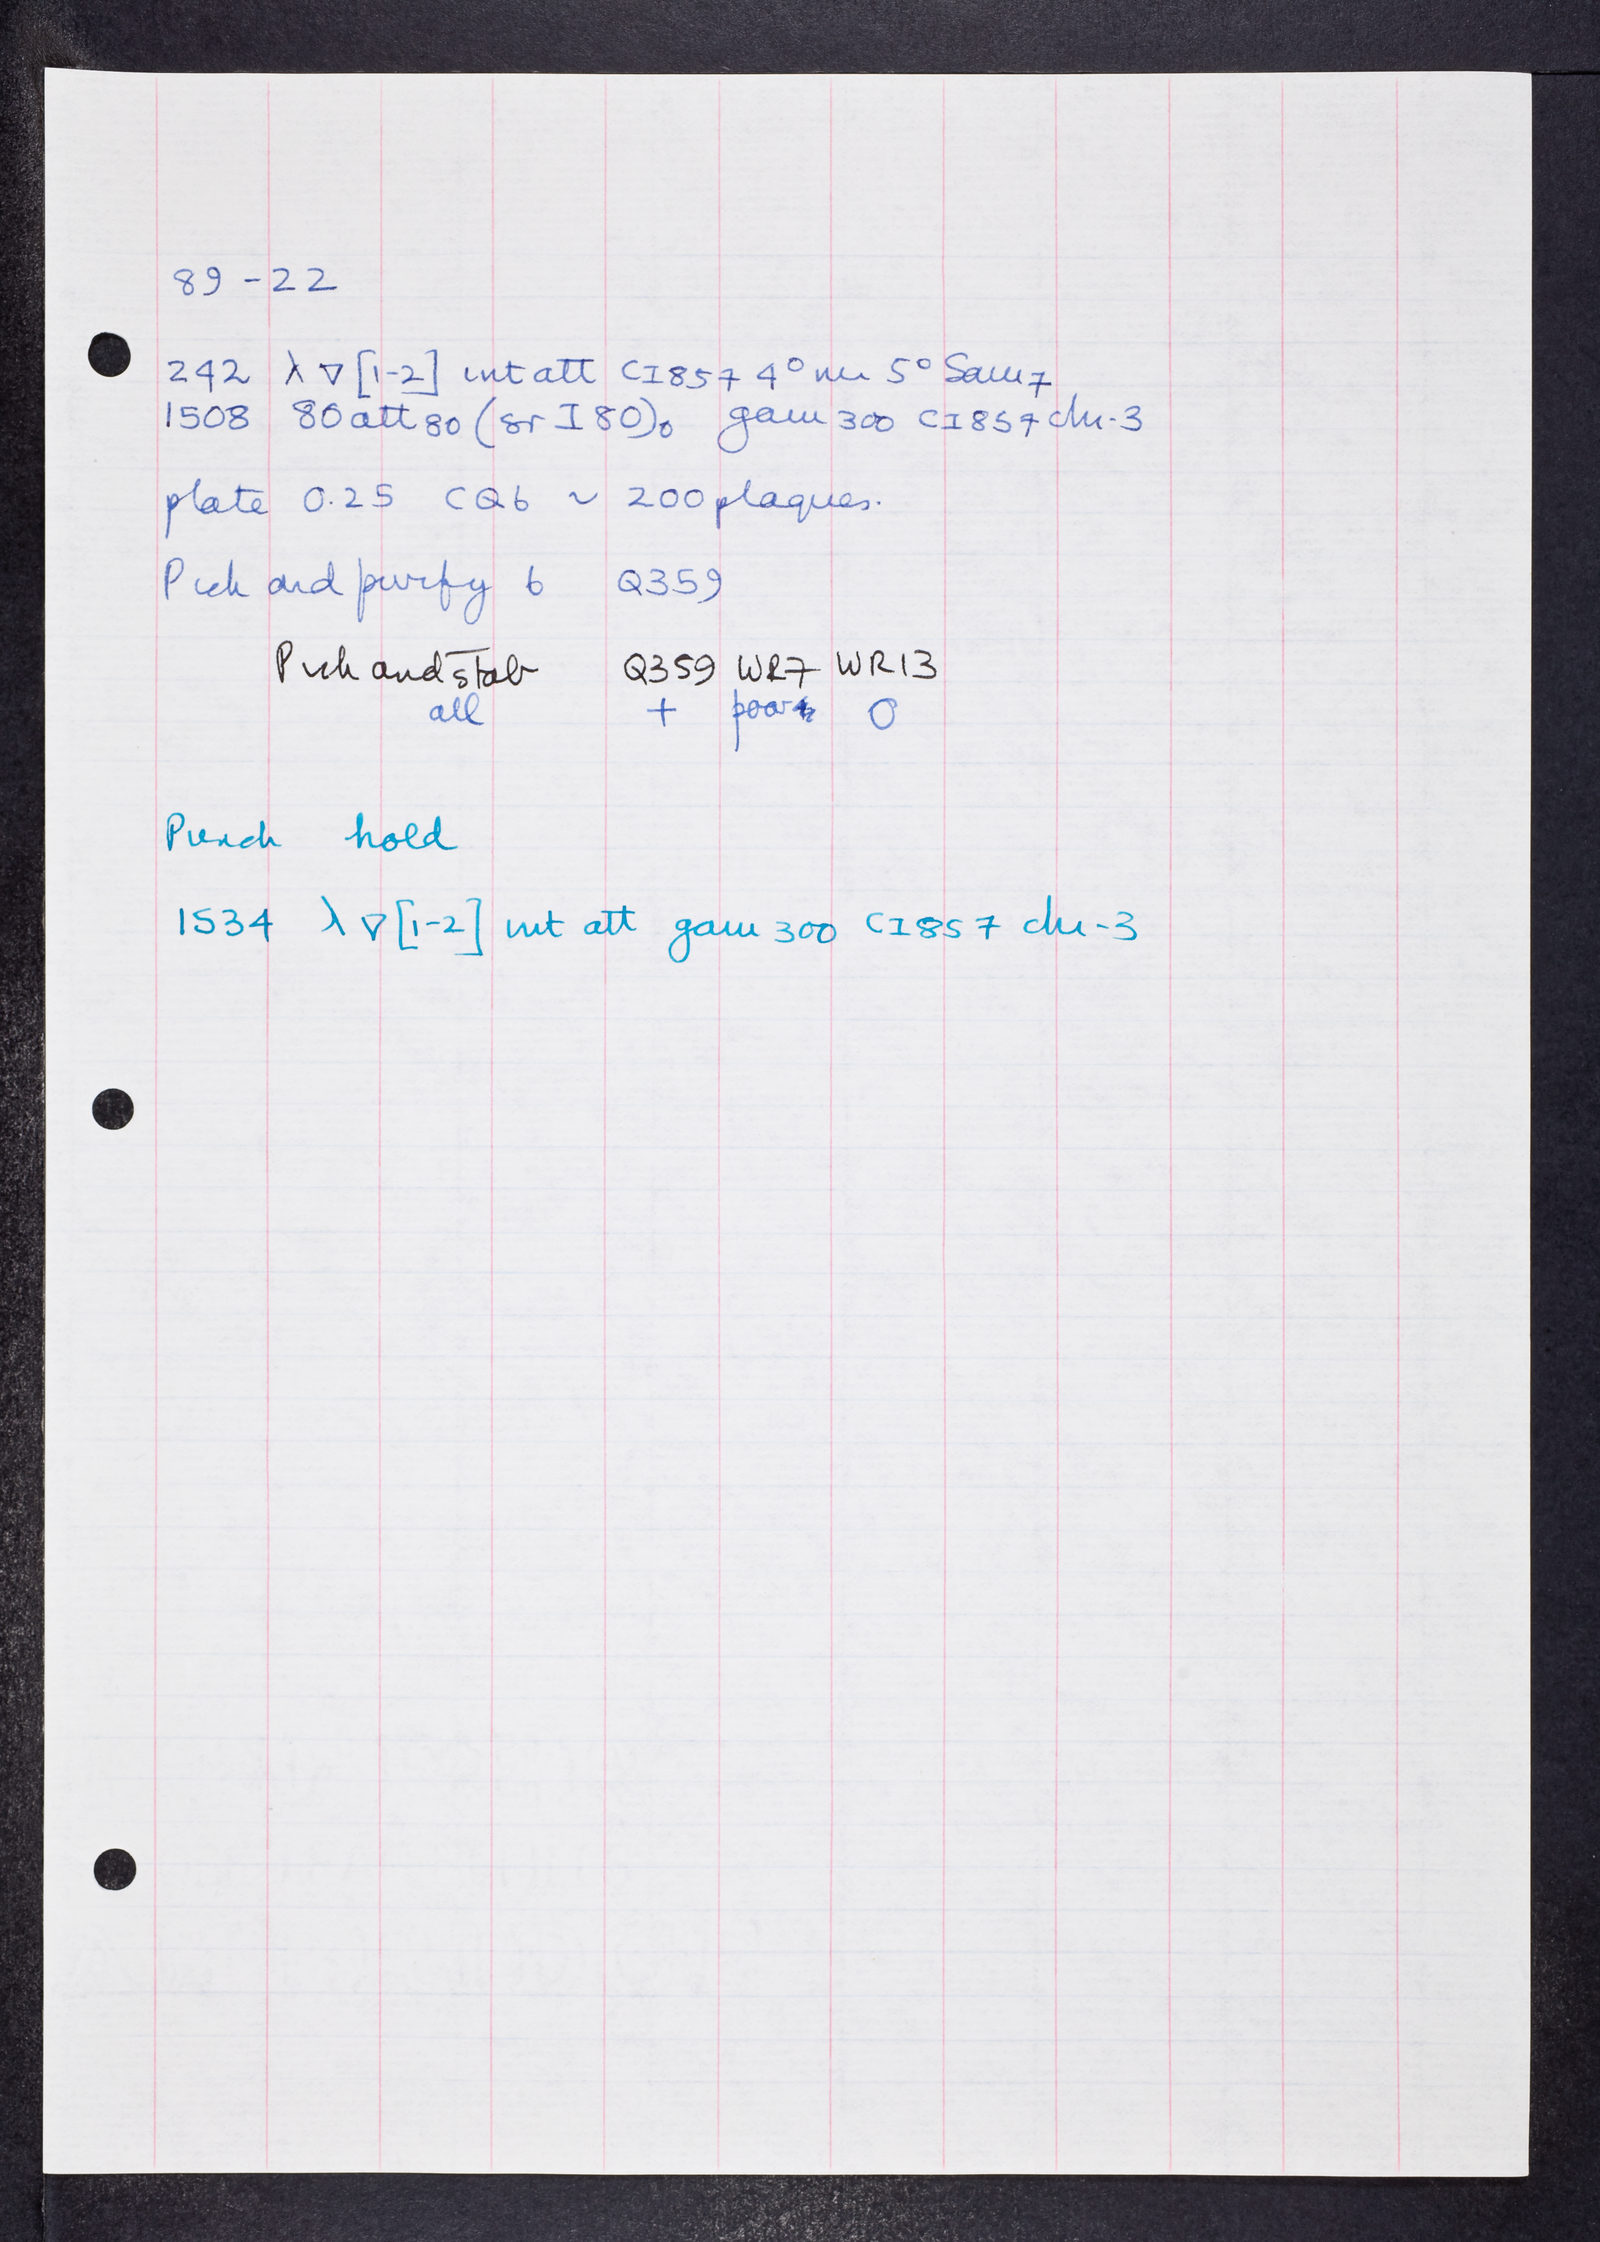 89-22
242 λ ∇ [1-2] int att CI857 4° nin 5° Sam7
1508 80att80 (sr I 80)₀ gam 300 CI857 chi-3
plate 0.25 CQ6 ~ 200 plaques.
Pick and purify 6 Q359
Pick and stab Q359 WR7 WR13
all + poor 0
Punch hold
1534 λ ∇ [1-2] int att gam 300 CI857 chi-3